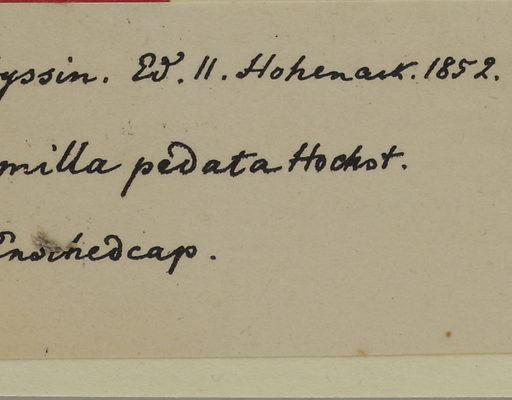 yssin. Ed. II. Hohenack. 1852.
milla pedata Hochst.
Enschedcap.